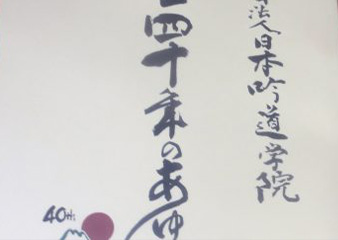 法人日本吟道学院
四十年のあゆ
40th